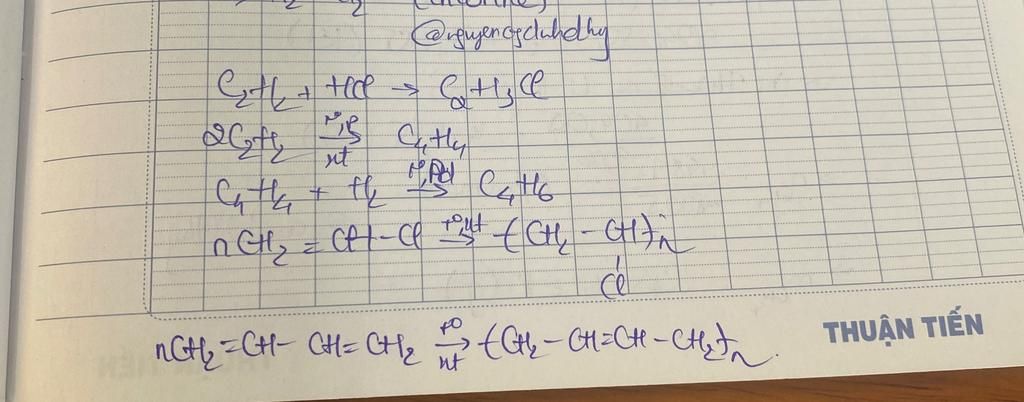 @nguyencgcluhdhy
C₂H₂ + HCl → C₂H₃Cl
2C₂H₂ →(t°,p / xt) C₄H₄
C₄H₄ + H₂ →(t°,Pd) C₄H₆
nCH₂ = CH - Cl →(t°,xt) -(CH₂ - CH)-ₙ
Cl
nCH₂ = CH - CH = CH₂ →(t° / xt) -(CH₂ - CH = CH - CH₂)-ₙ.
THUẬN TIẾN